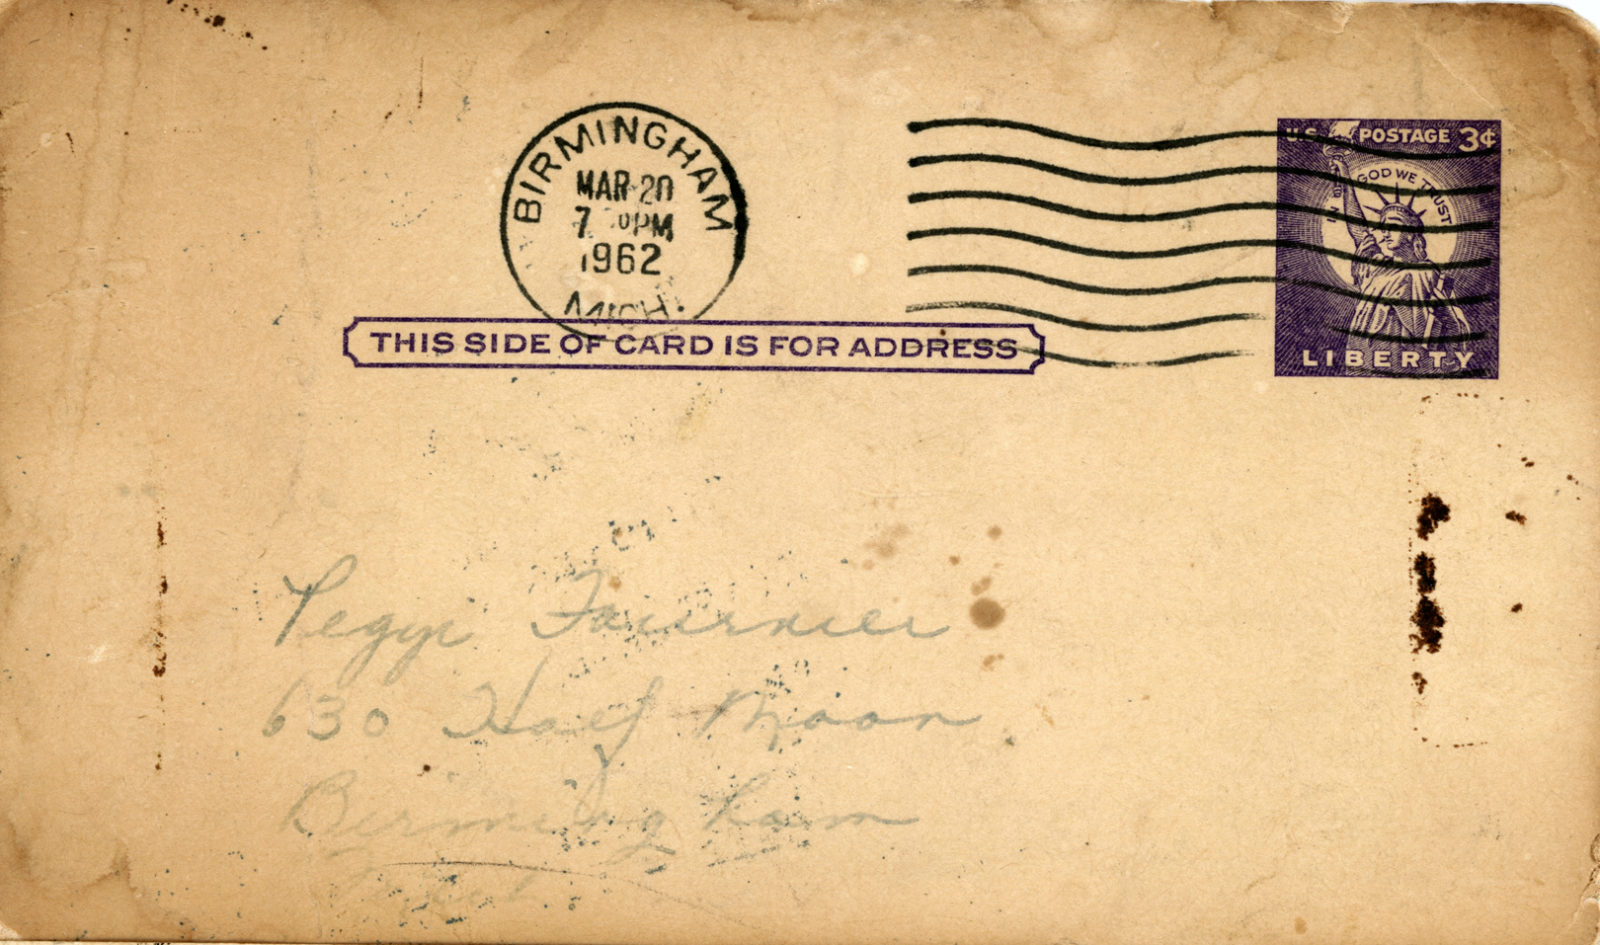 BIRMINGHAM
MAR 20
7 PM
1962
MICH.
U.S. POSTAGE 3¢
IN GOD WE TRUST
LIBERTY
THIS SIDE OF CARD IS FOR ADDRESS
Peggi Fournier
630 Half Moon
Birmingham
Mich